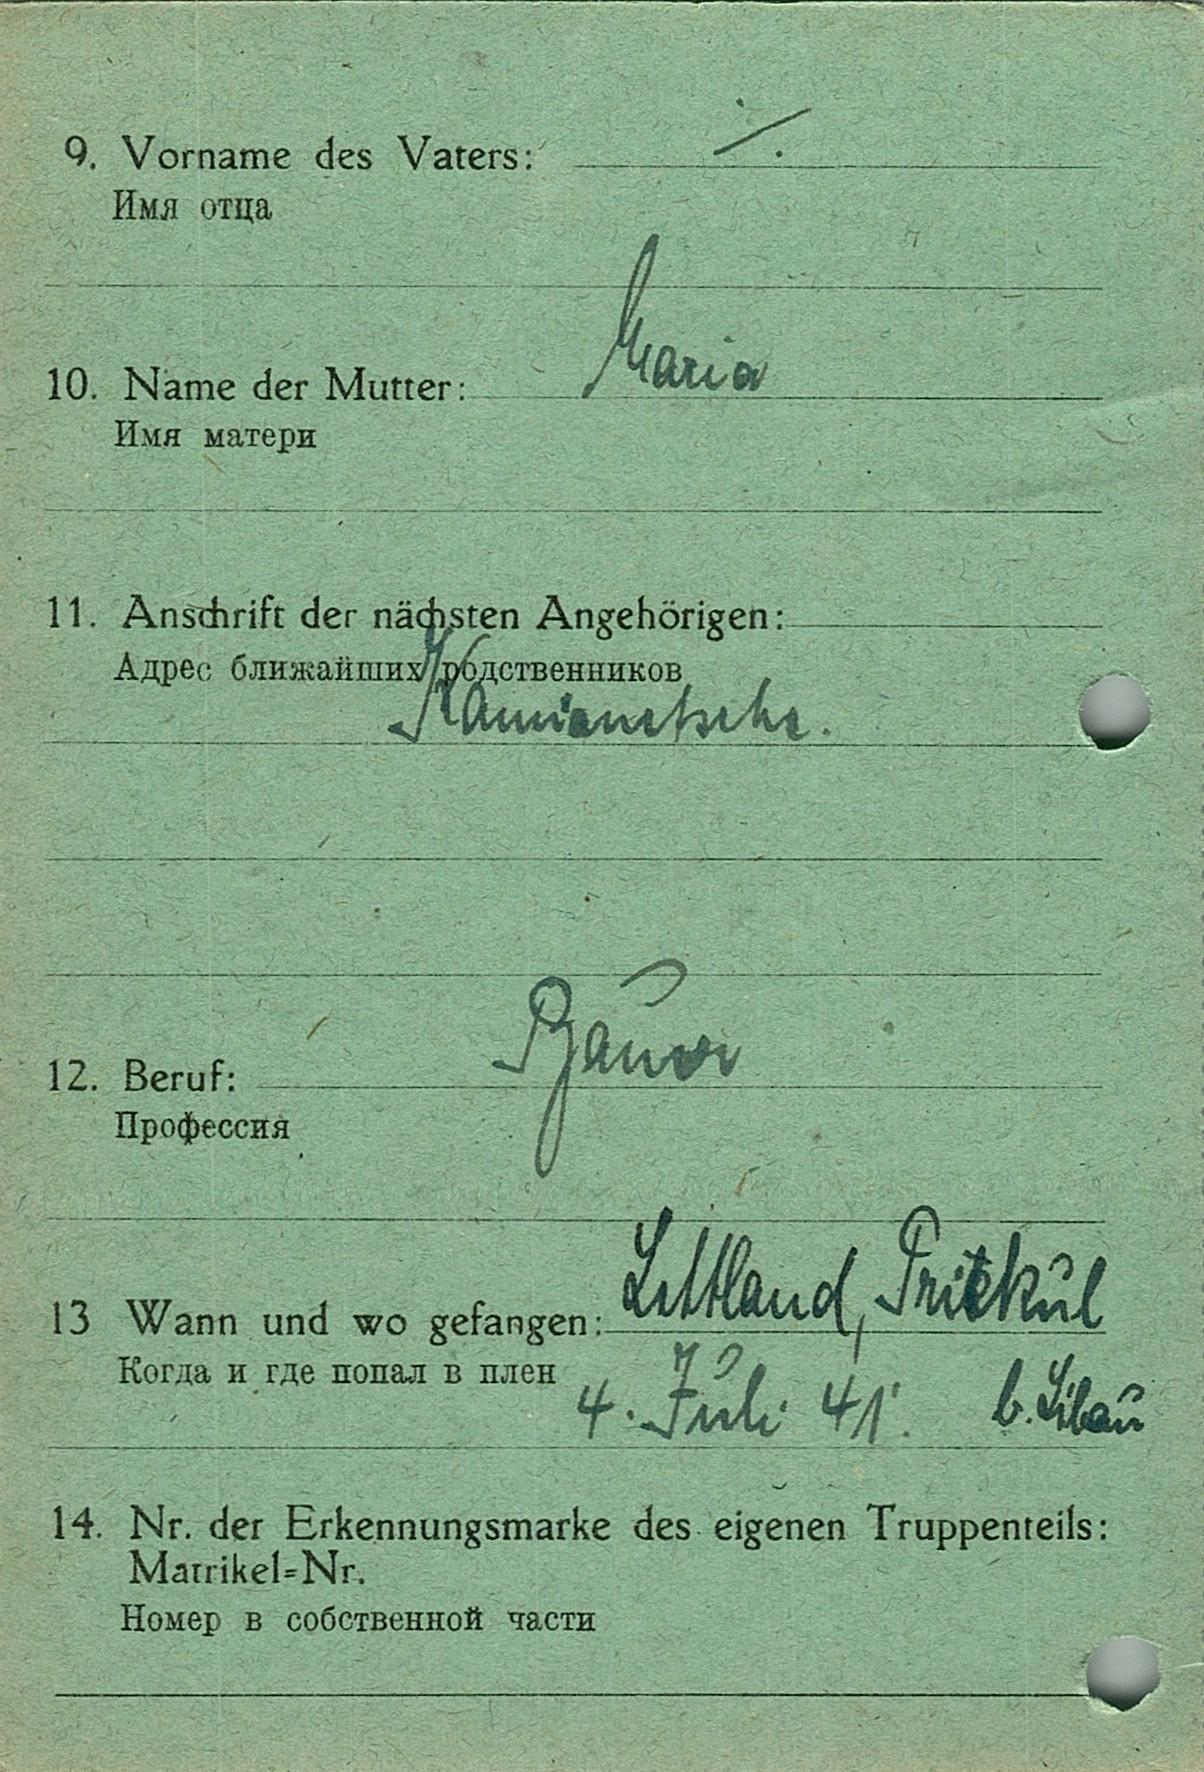 9. Vorname des Vaters: ⁒
Имя отца
Maria
10. Name der Mutter:
Имя матери
11. Anschrift der nächsten Angehörigen:
Адрес ближайших родственников
Bauer
12. Beruf:
Профессия
Lettland, Priekul
13 Wann und wo gefangen:
Когда и где попал в плен
4. Juli 41. b. Libau
14. Nr. der Erkennungsmarke des eigenen Truppenteils:
Matrikel=Nr.
Номер в собственной части